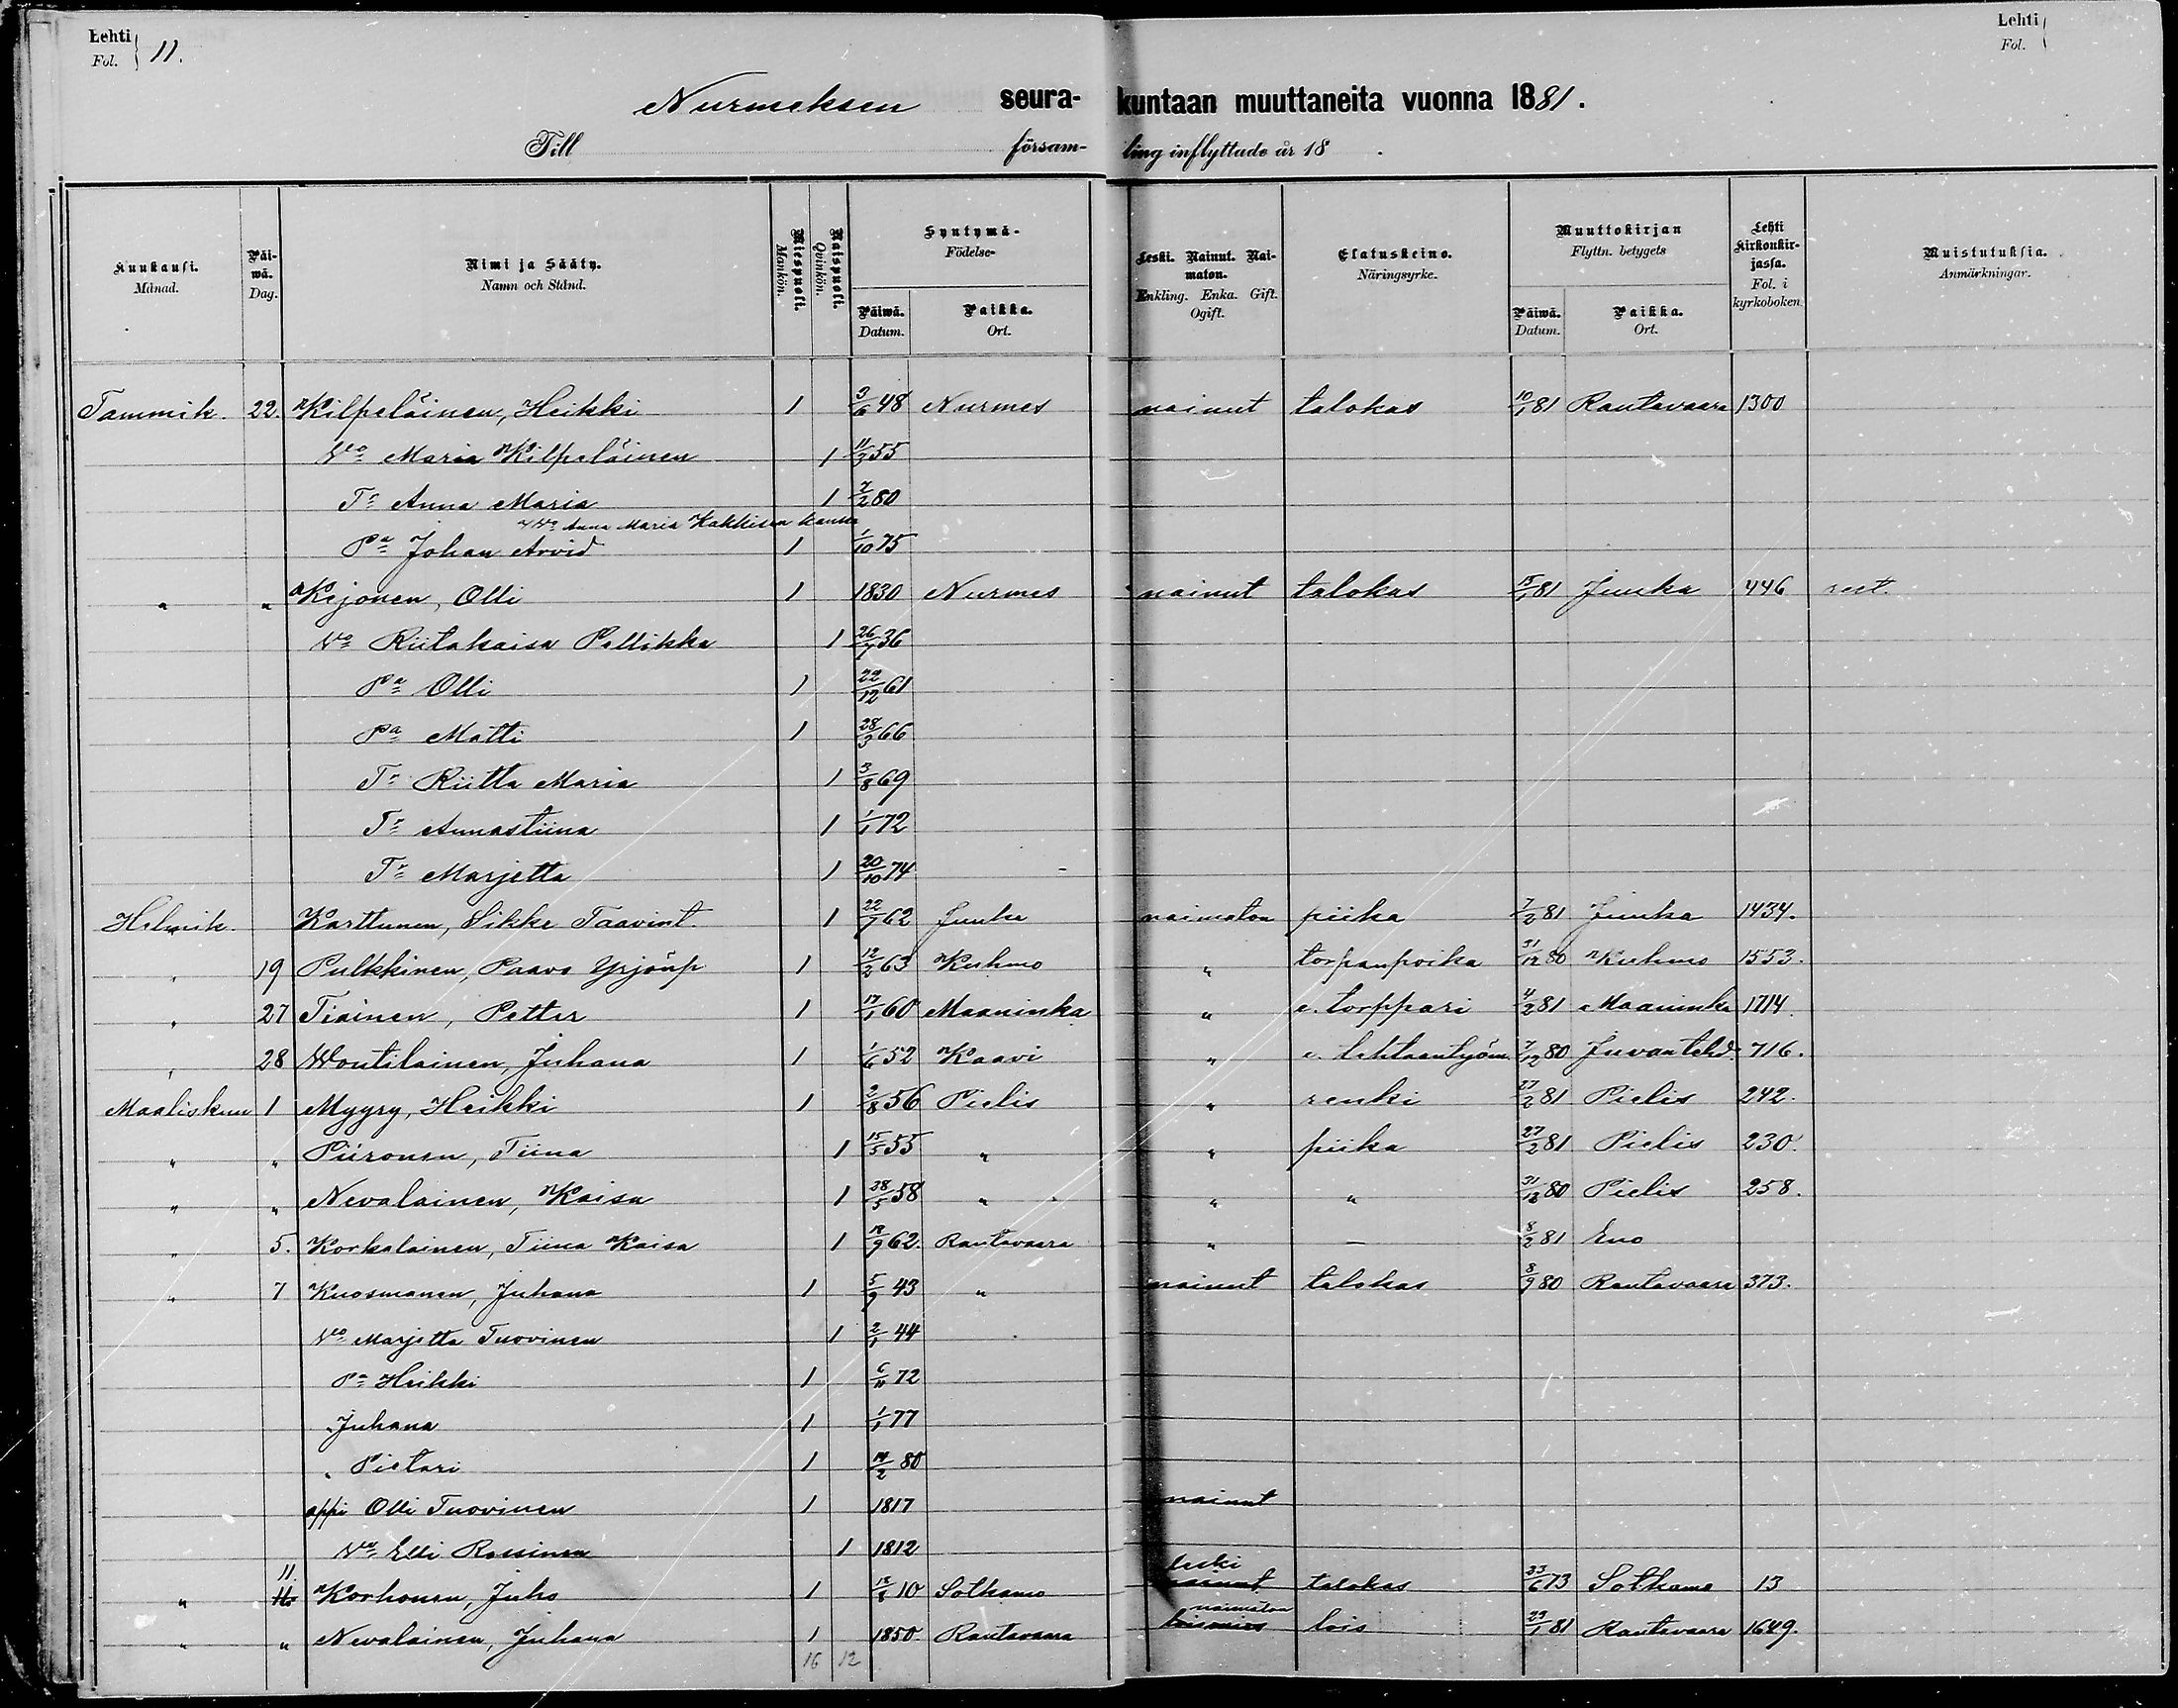 Lehti Fol. 11.
Lehti Fol.
Nurmeksen seurakuntaan muuttaneita vuonna 1881.
Till försam-ling inflyttade år 18 .
Kuukausi. Månad. Päiwä. Dag. Nimi ja Sääty. Namn och Stånd. Miespuoli. Mankön. Naispuoli. Qvinkön. Syntymä- Födelse- Päiwä. Datum. Paikka. Ort. Leski. Nainut. Naimaton. Enkling. Enka. Gift. Ogift. Elatuskeino. Näringsyrke. Muuttokirjan Flyttn. betygets Päiwä. Datum. Paikka. Ort. Lehti Kirkonkirjassa. Fol. i kyrkoboken. Muistutuksia. Anmärkningar.
Tammik. 22. Kilpeläinen, Heikki 1 3/6 48 Nurmes nainut talokas 10/1 81 Rautavaara 1300
Vo Maria Kilpeläinen 1 11/3 55
Tr Anna Maria 1 7/2 80
Vo Anna Maria Kakkisen kanssa
Pa Johan Arvid 1 1/10 75
" " Kejonen, Olli 1 1830 Nurmes nainut talokas 15/1 81 Juuka 446 rest.
Vo Riitakaisa Pellikka 1 26/7 36
Pa Olli 1 22/12 61
Pa Matti 1 28/3 66
Tr Riitta Maria 1 3/8 69
Tr Annastiina 1 1/1 72
Tr Marjetta 1 20/10 74
Helmik. Karttunen, Sikke Taavint. 1 22/7 62 Juuka naimaton piika 7/2 81 Juuka 1434.
" 19 Pulkkinen, Paavo Yrjönp 1 12/2 63 Kuhmo " torpanpoika 31/12 80 Kuhmo 1553.
" 27 Tiainen, Petter 1 17/1 60 Maaninka " e. torppari 4/2 81 Maaninka 1714.
" 28 Woutilainen, Juhana 1 1/6 52 Kaavi " e. tehtaantyöm. 7/12 80 Juvantehd. 716.
Maaliskuu 1 Mygry, Heikki 1 2/8 56 Pielis " renki 27/2 81 Pielis 242.
" " Piironen, Tiina 1 15/5 55 " " piika 27/2 81 Pielis 230.
" " Nevalainen, Kaisa 1 28/5 58 " " " 31/12 80 Pielis 258.
" 5. Korkalainen, Tiina Kaisa 1 18/9 62. Rautavaara " — 8/2 81 Eno
" 7 Kuosmanen, Juhana 1 5/9 43 " nainut talokas 8/9 80 Rautavaara 373.
Vo Marjetta Tuovinen 1 2/1 44
Pa Heikki 1 6/11 72
" Juhana 1 1/1 77
" Pietari 1 14/2 80
appi Olli Tuovinen 1 1817 nainut
Vo Elli Rossinen 1 1812
" 11. Korhonen, Juho 1 18/8 10 Sotkamo leski nainut talokas 23/6 73 Sotkamo 13
" " Nevalainen, Juhana 1 1850. Rautavaara naimaton lois 29/1 81 Rautavaara 1649.
16 12